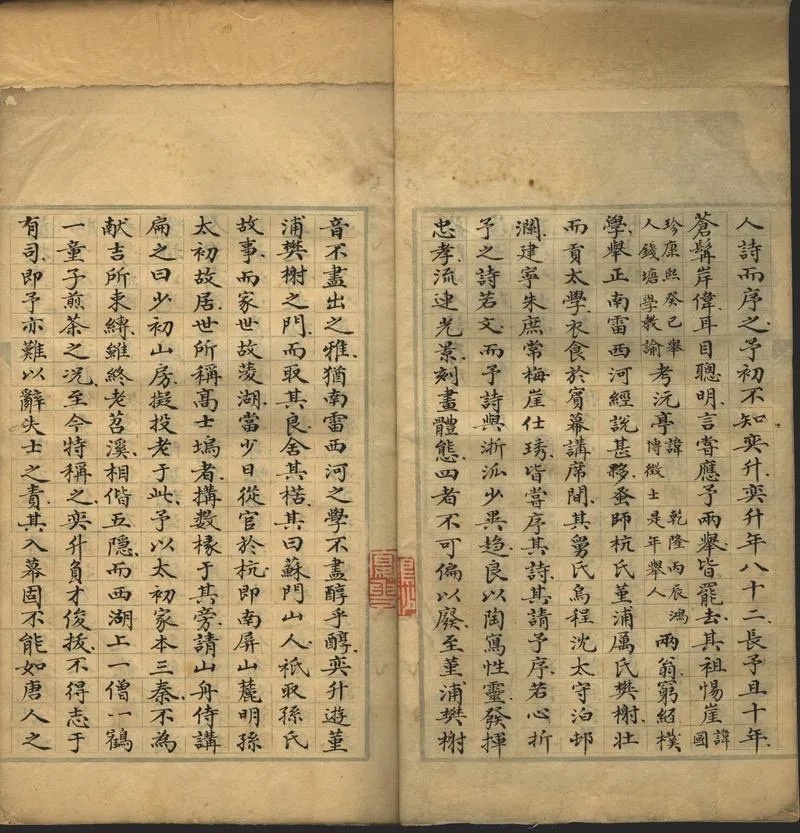 人詩而序之予初不知奕升奕升年八十二長予且十年
蒼髯岸偉耳目聰明言嘗應予兩舉皆罷去其祖惕崖諱國
珍康熙癸巳舉人錢塘學教諭考沅亭諱乾隆丙辰鴻博徵士是年舉人兩翁窮經樸
學舉正南雷西河經說甚夥蚤師杭氏堇浦厲氏樊榭壯
而貢太學衣食於賓幕講席間其舅氏烏程沈太守泊邨
瀾建寧朱庶常梅崖仕琇皆嘗序其詩其請予序若心折
予之詩若文而予詩與浙派少異趨良以陶寫性靈發揮
忠孝流連光景刻畫體態四者不可偏以廢至堇浦樊榭
音不盡出之雅猶南雷西河之學不盡醇乎醇奕升遊堇
浦樊榭之門而取其良舍其楛其曰蘇門山人祇取孫氏
故事而家世故淩湖當少日從官於杭即南屏山麓明孫
太初故居世所稱高士塢者搆數椽于其旁請山舟侍講
扁之曰少初山房擬投老于此予以太初家本三秦不為
献吉所束縛雖終老苕溪相偕五隱而西湖上一僧一鶴
一童子煎茶之況至今特稱之奕升負才俊拔不得志于
有司即予亦難以辭失士之責其入幕固不能如唐人之